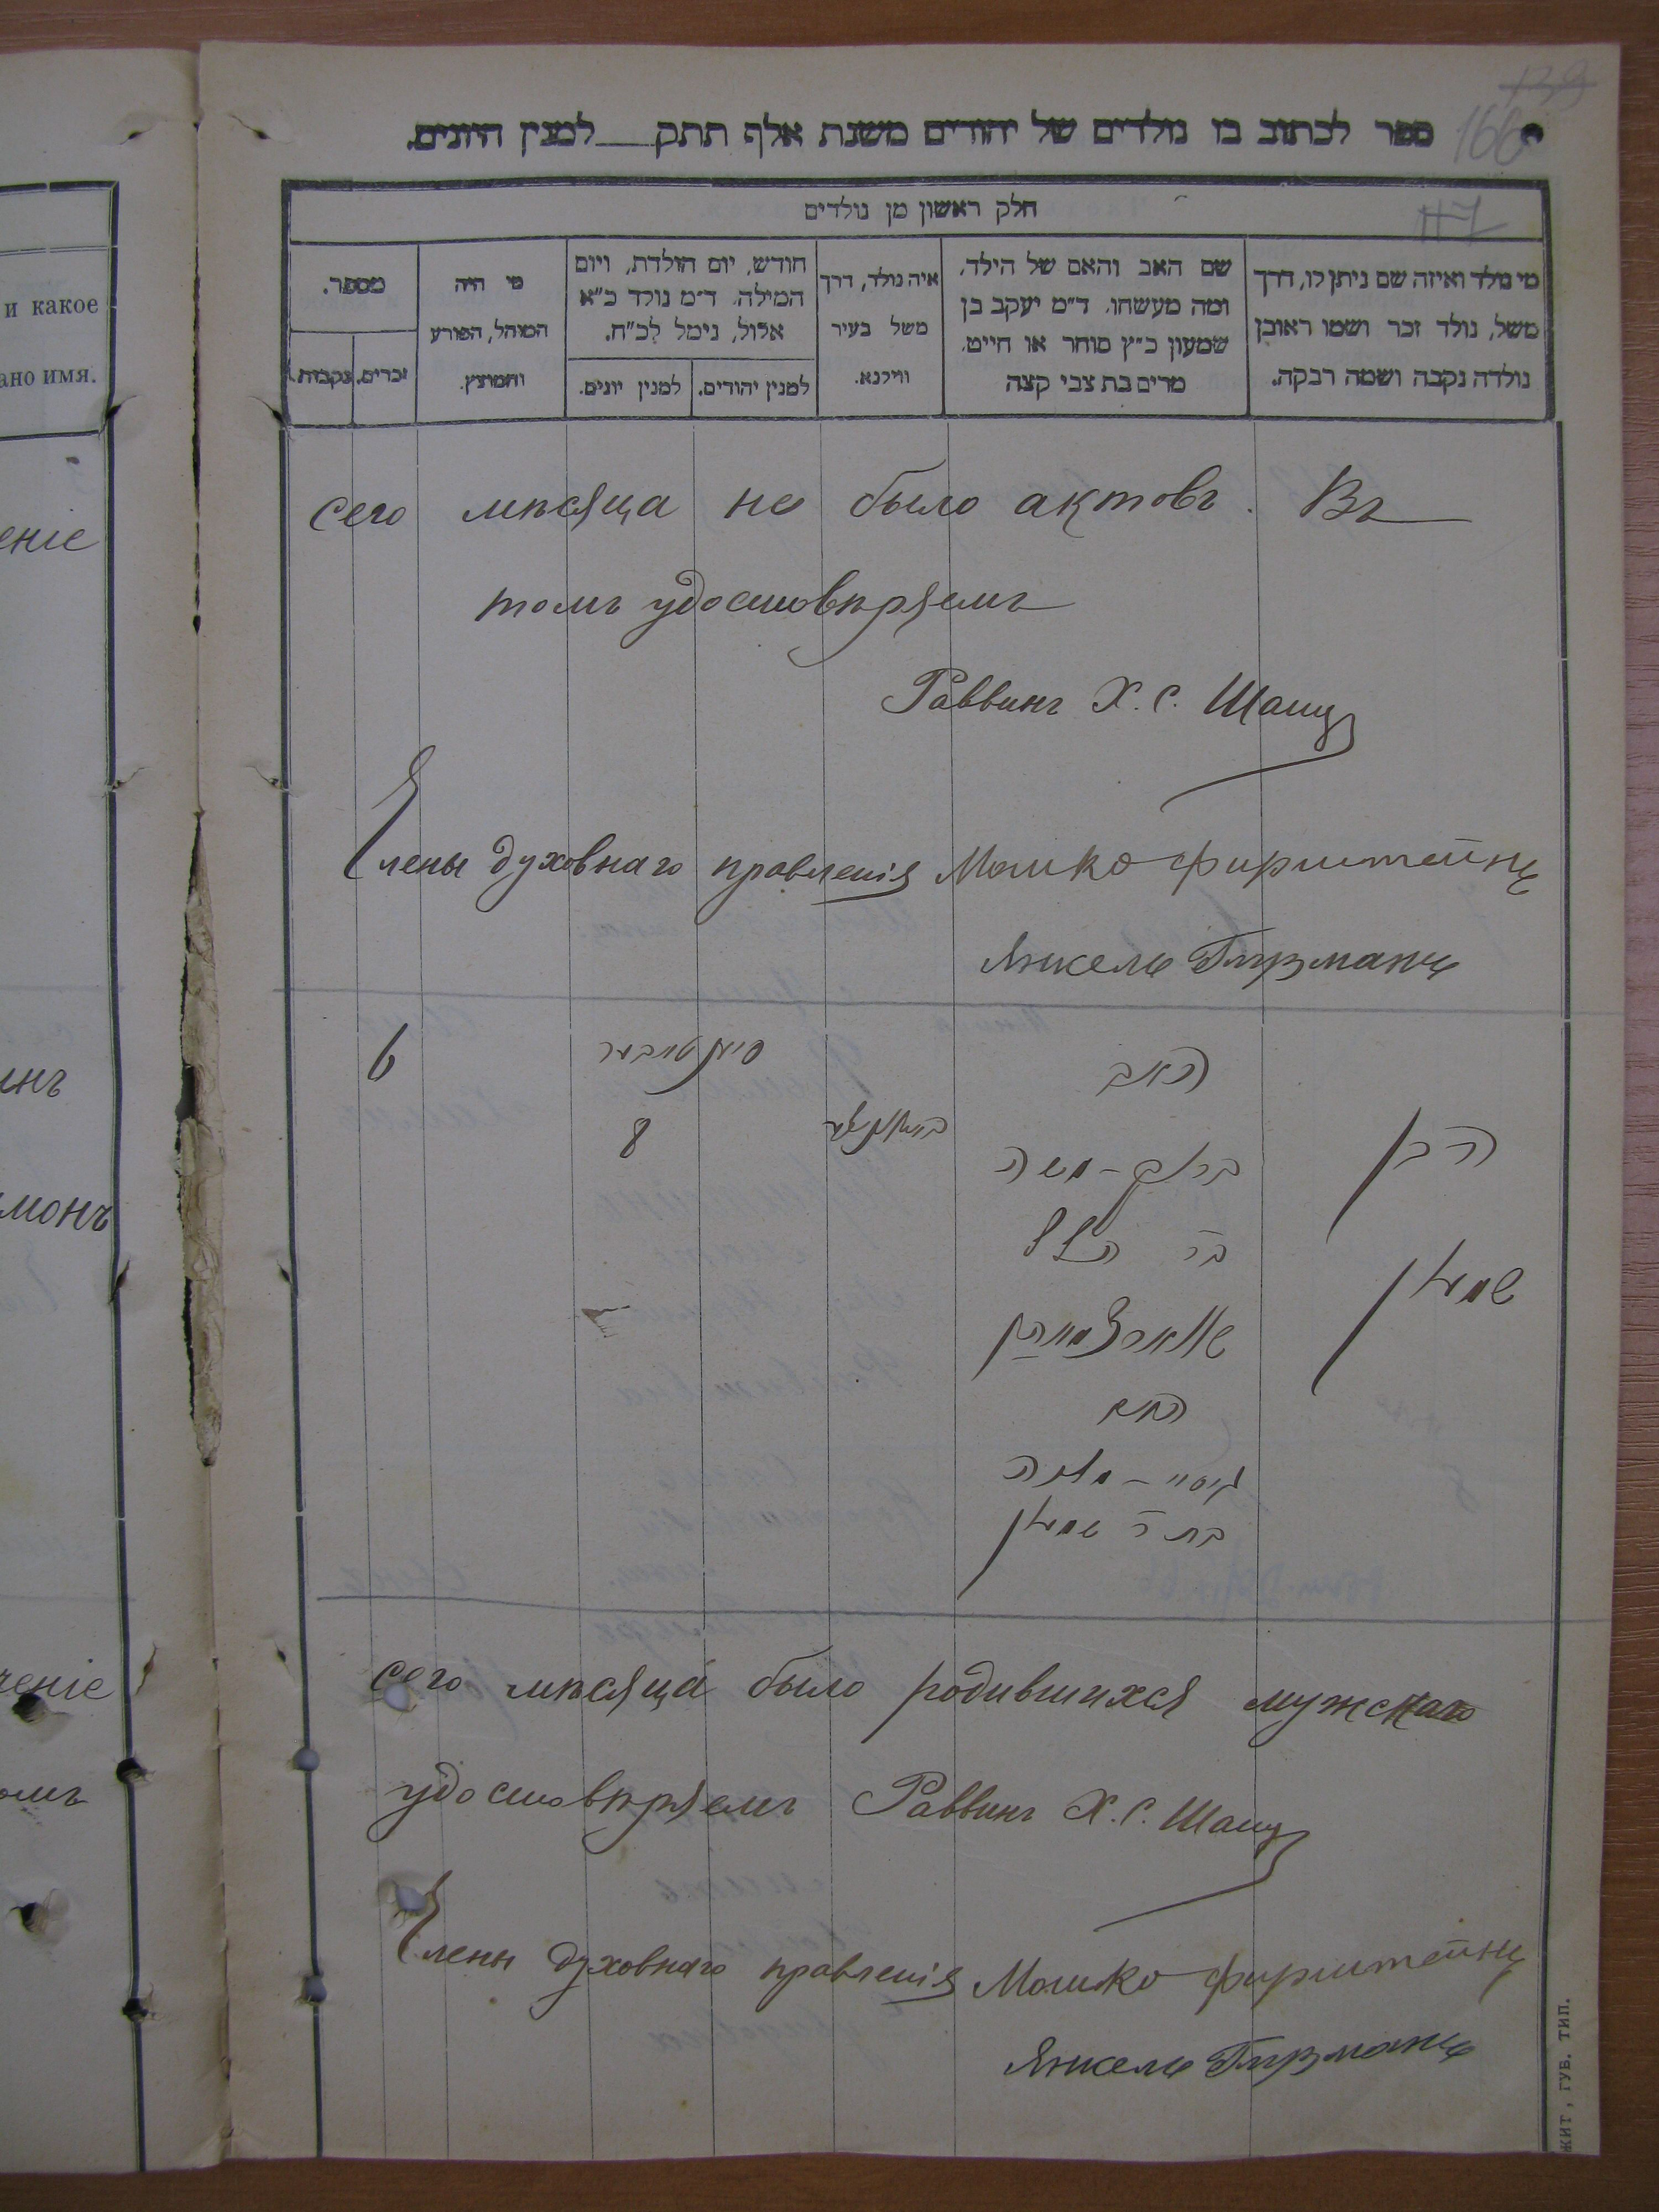 139
166
ספר לכתוב בו נולדים של יהודים משנת אלף תתק למנין היונים.
חלק ראשון מן נולדים
מי נולד ואיזה שם ניתן לו, דרך
משל, נולד זכר ושמו ראובן
נולדה נקבה ושמה רבקה.
שם האב והאם של הילד,
ומה מעשהו, ד״מ יעקב בן
שמעון כ״ץ סוחר או חייט,
מרים בת צבי קצה
איה נולד, דרך
משל בעיר
ווילנא.
חודש, יום הולדת, ויום
המילה, ד״מ נולד כ״א
אלול, נימל לכ״ח.
למנין יהודים.
למנין יונים.
מי היה
המוהל, הפורע
והמוצץ.
מספר.
זכרים.
נקבות.
и какое
ано имя.
сего мѣсяца не было актовъ. Въ
томъ удостовѣряемъ
Раввинъ Х. С. Шац
Члены духовнаго правленія Мошко Фирштейнъ
Янкель Гирзманъ
6
8
האב
הבן
משה
בר
שמעון
האם
בת ר שמעון
сего мѣсяца было родившихся мужскаго
удостовѣряемъ Раввинъ Х. С. Шац
Члены духовнаго правленія Мошко Фирштейнъ
Янкель Гирзманъ
еніе
инъ
монъ
чение
омъ
ЖИТ, ГУБ. ТИП.